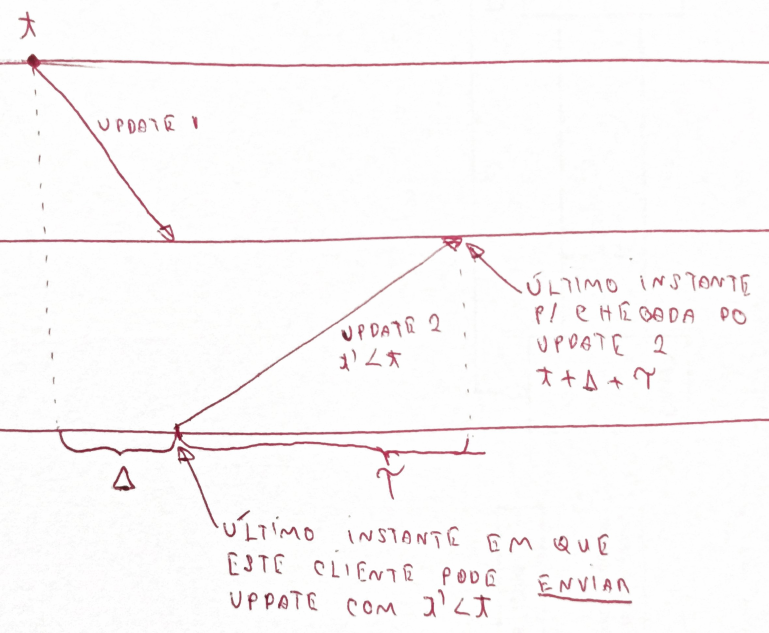 t
UPDATE 1
ÚLTIMO INSTANTE
P/ CHEGADA DO
UPDATE 2
t + Δ + τ
UPDATE 2
t' < t
Δ
τ
ÚLTIMO INSTANTE EM QUE
ESTE CLIENTE PODE ENVIAR
UPDATE COM t' < t